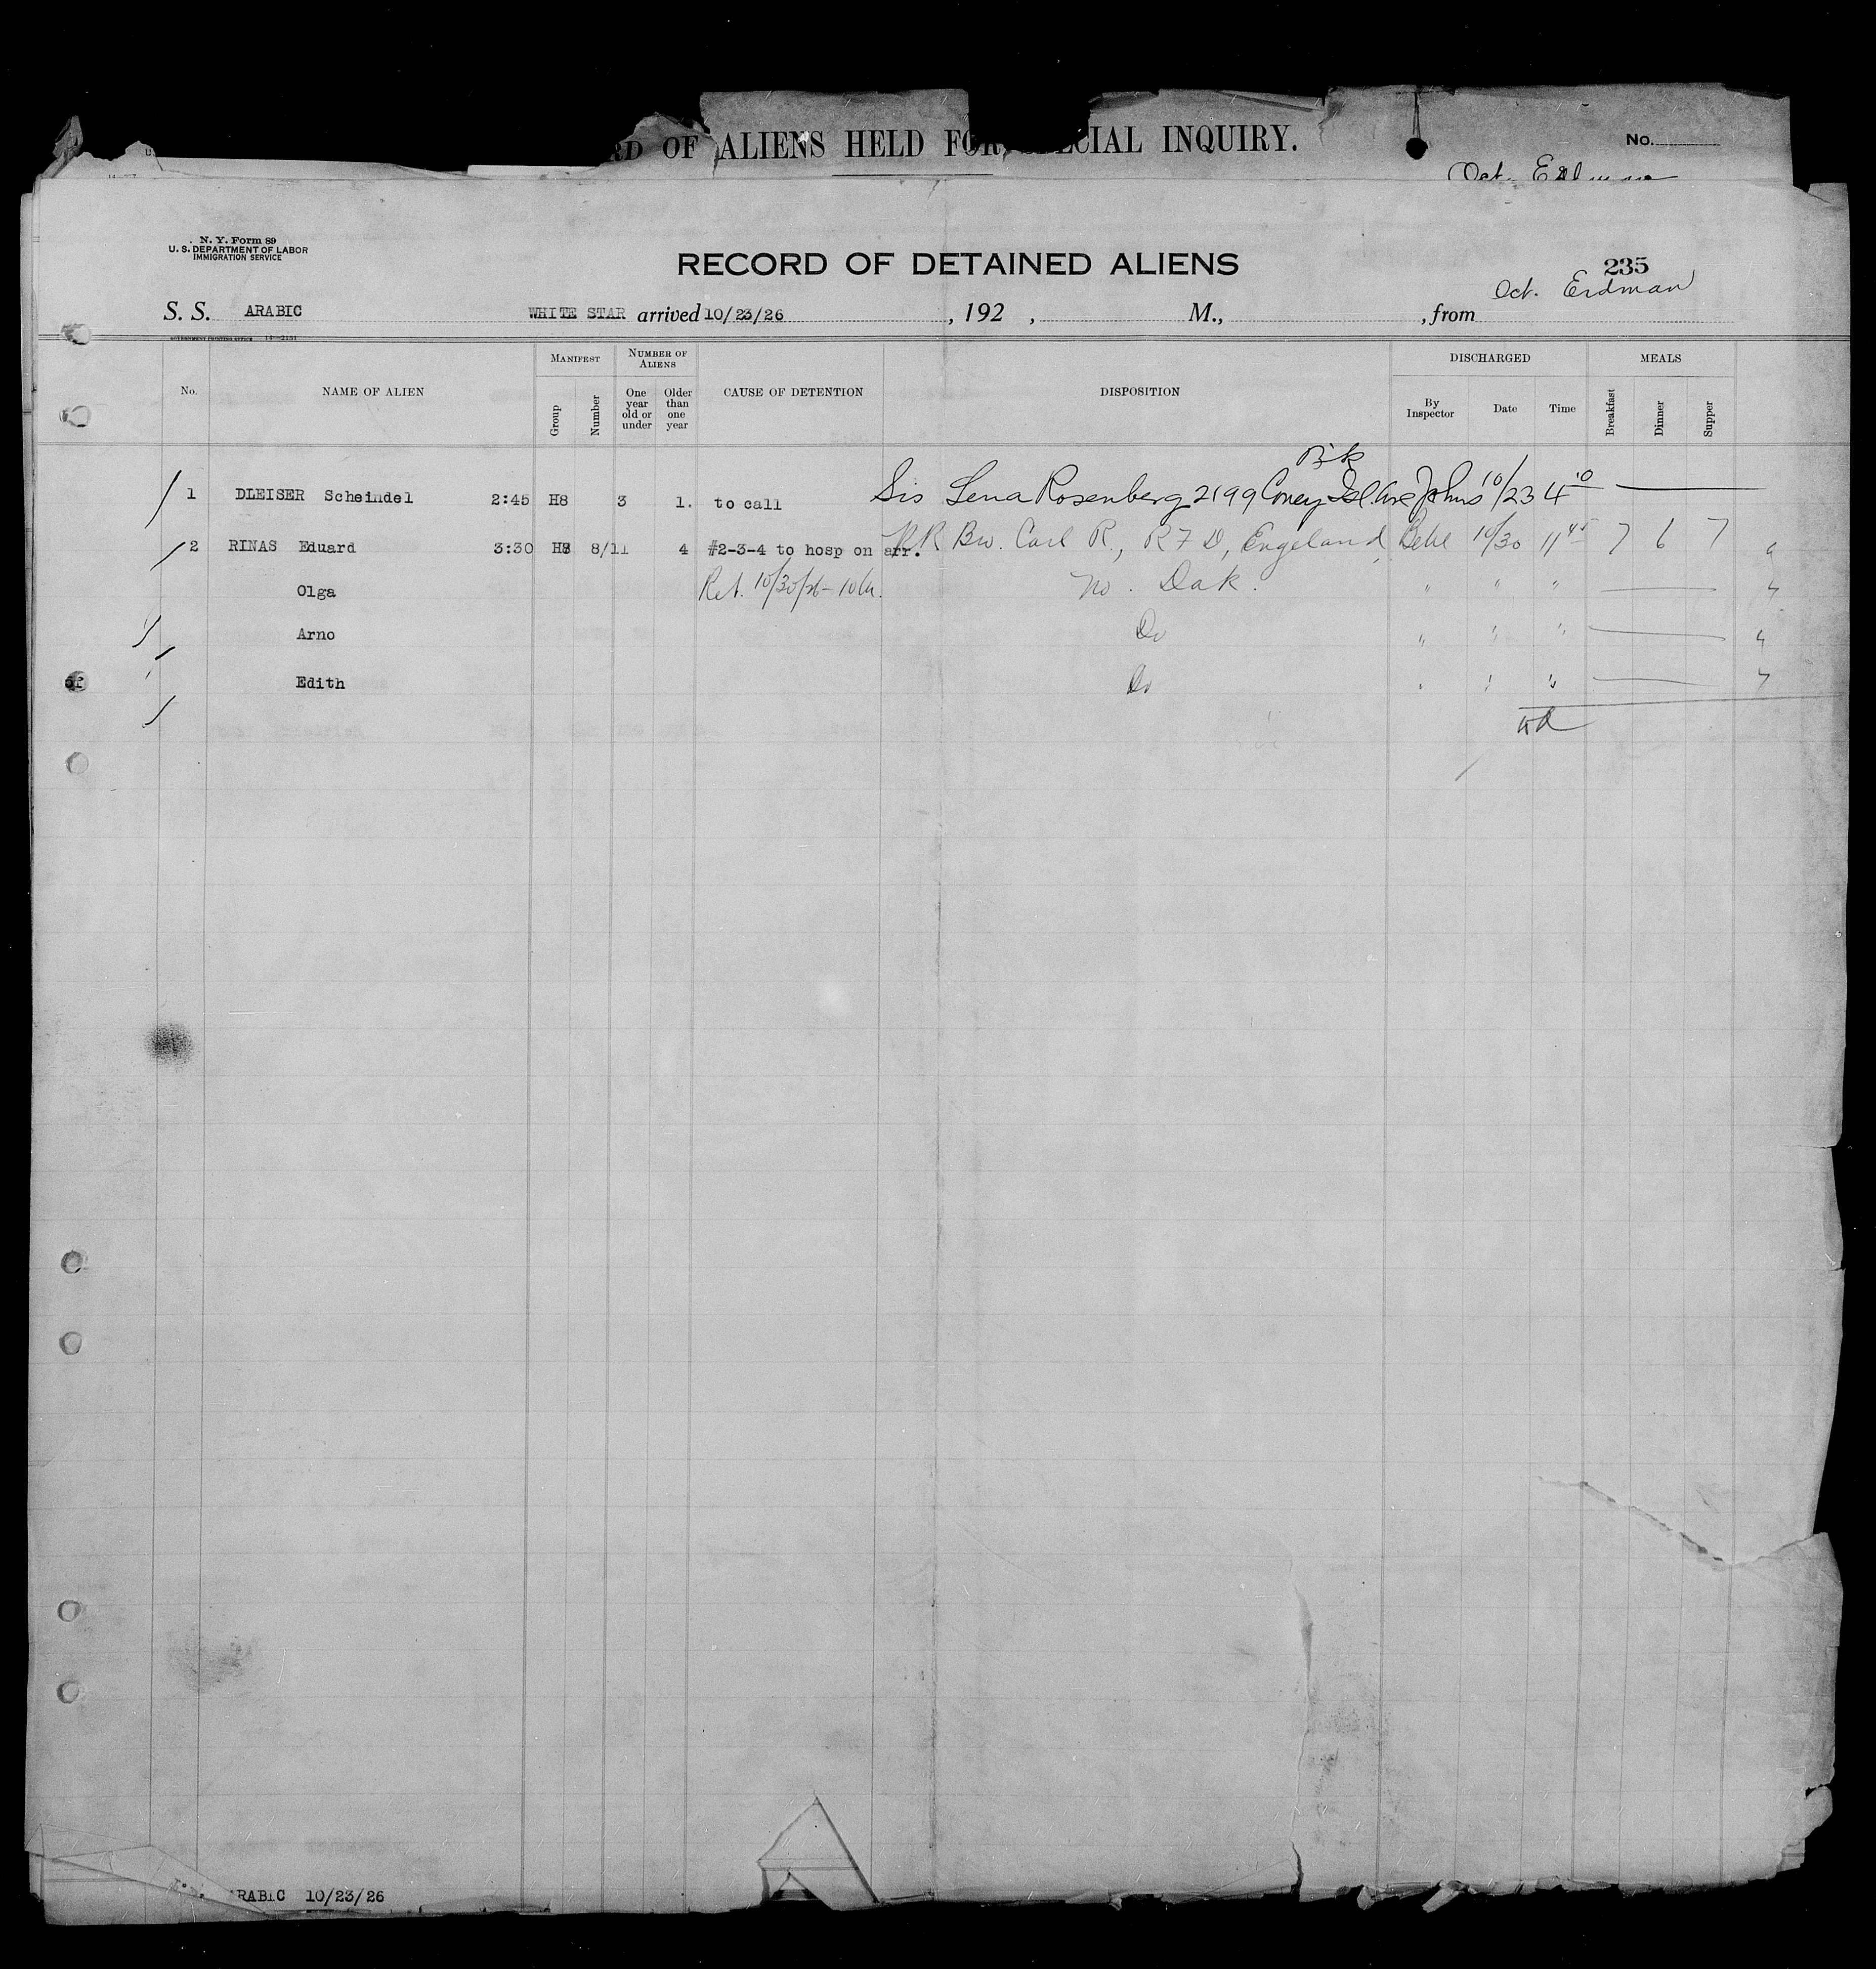 OF ALIENS HELD FOR SPECIAL INQUIRY.
No.
Oct. Erdman
N. Y. Form 89
U. S. DEPARTMENT OF LABOR
IMMIGRATION SERVICE
RECORD OF DETAINED ALIENS
235
Oct. Erdman
S. S. ARABIC WHITE STAR arrived 10/23/26 , 192 , M., , from
GOVERNMENT PRINTING OFFICE
No. NAME OF ALIEN MANIFEST Group Number NUMBER OF ALIENS One year old or under Older than one year CAUSE OF DETENTION DISPOSITION DISCHARGED By Inspector Date Time MEALS Breakfast Dinner Supper
Bk
1 DLEISER Scheindel 2:45 H8 3 1. to call Sis Lena Rosenberg 2199 Coney Isl. Ave Johns 10/23 4 10
2 RINAS Eduard 3:30 H8 8/11 4 #2-3-4 to hosp on arr. RR Bro. Carl R., RFD, Engeland, 10/30 11 45 7 6 7
Olga Ret. 10/30/26 - No. Dak. " " "
Arno Do " " "
Edith Do " " "
ARABIC 10/23/26